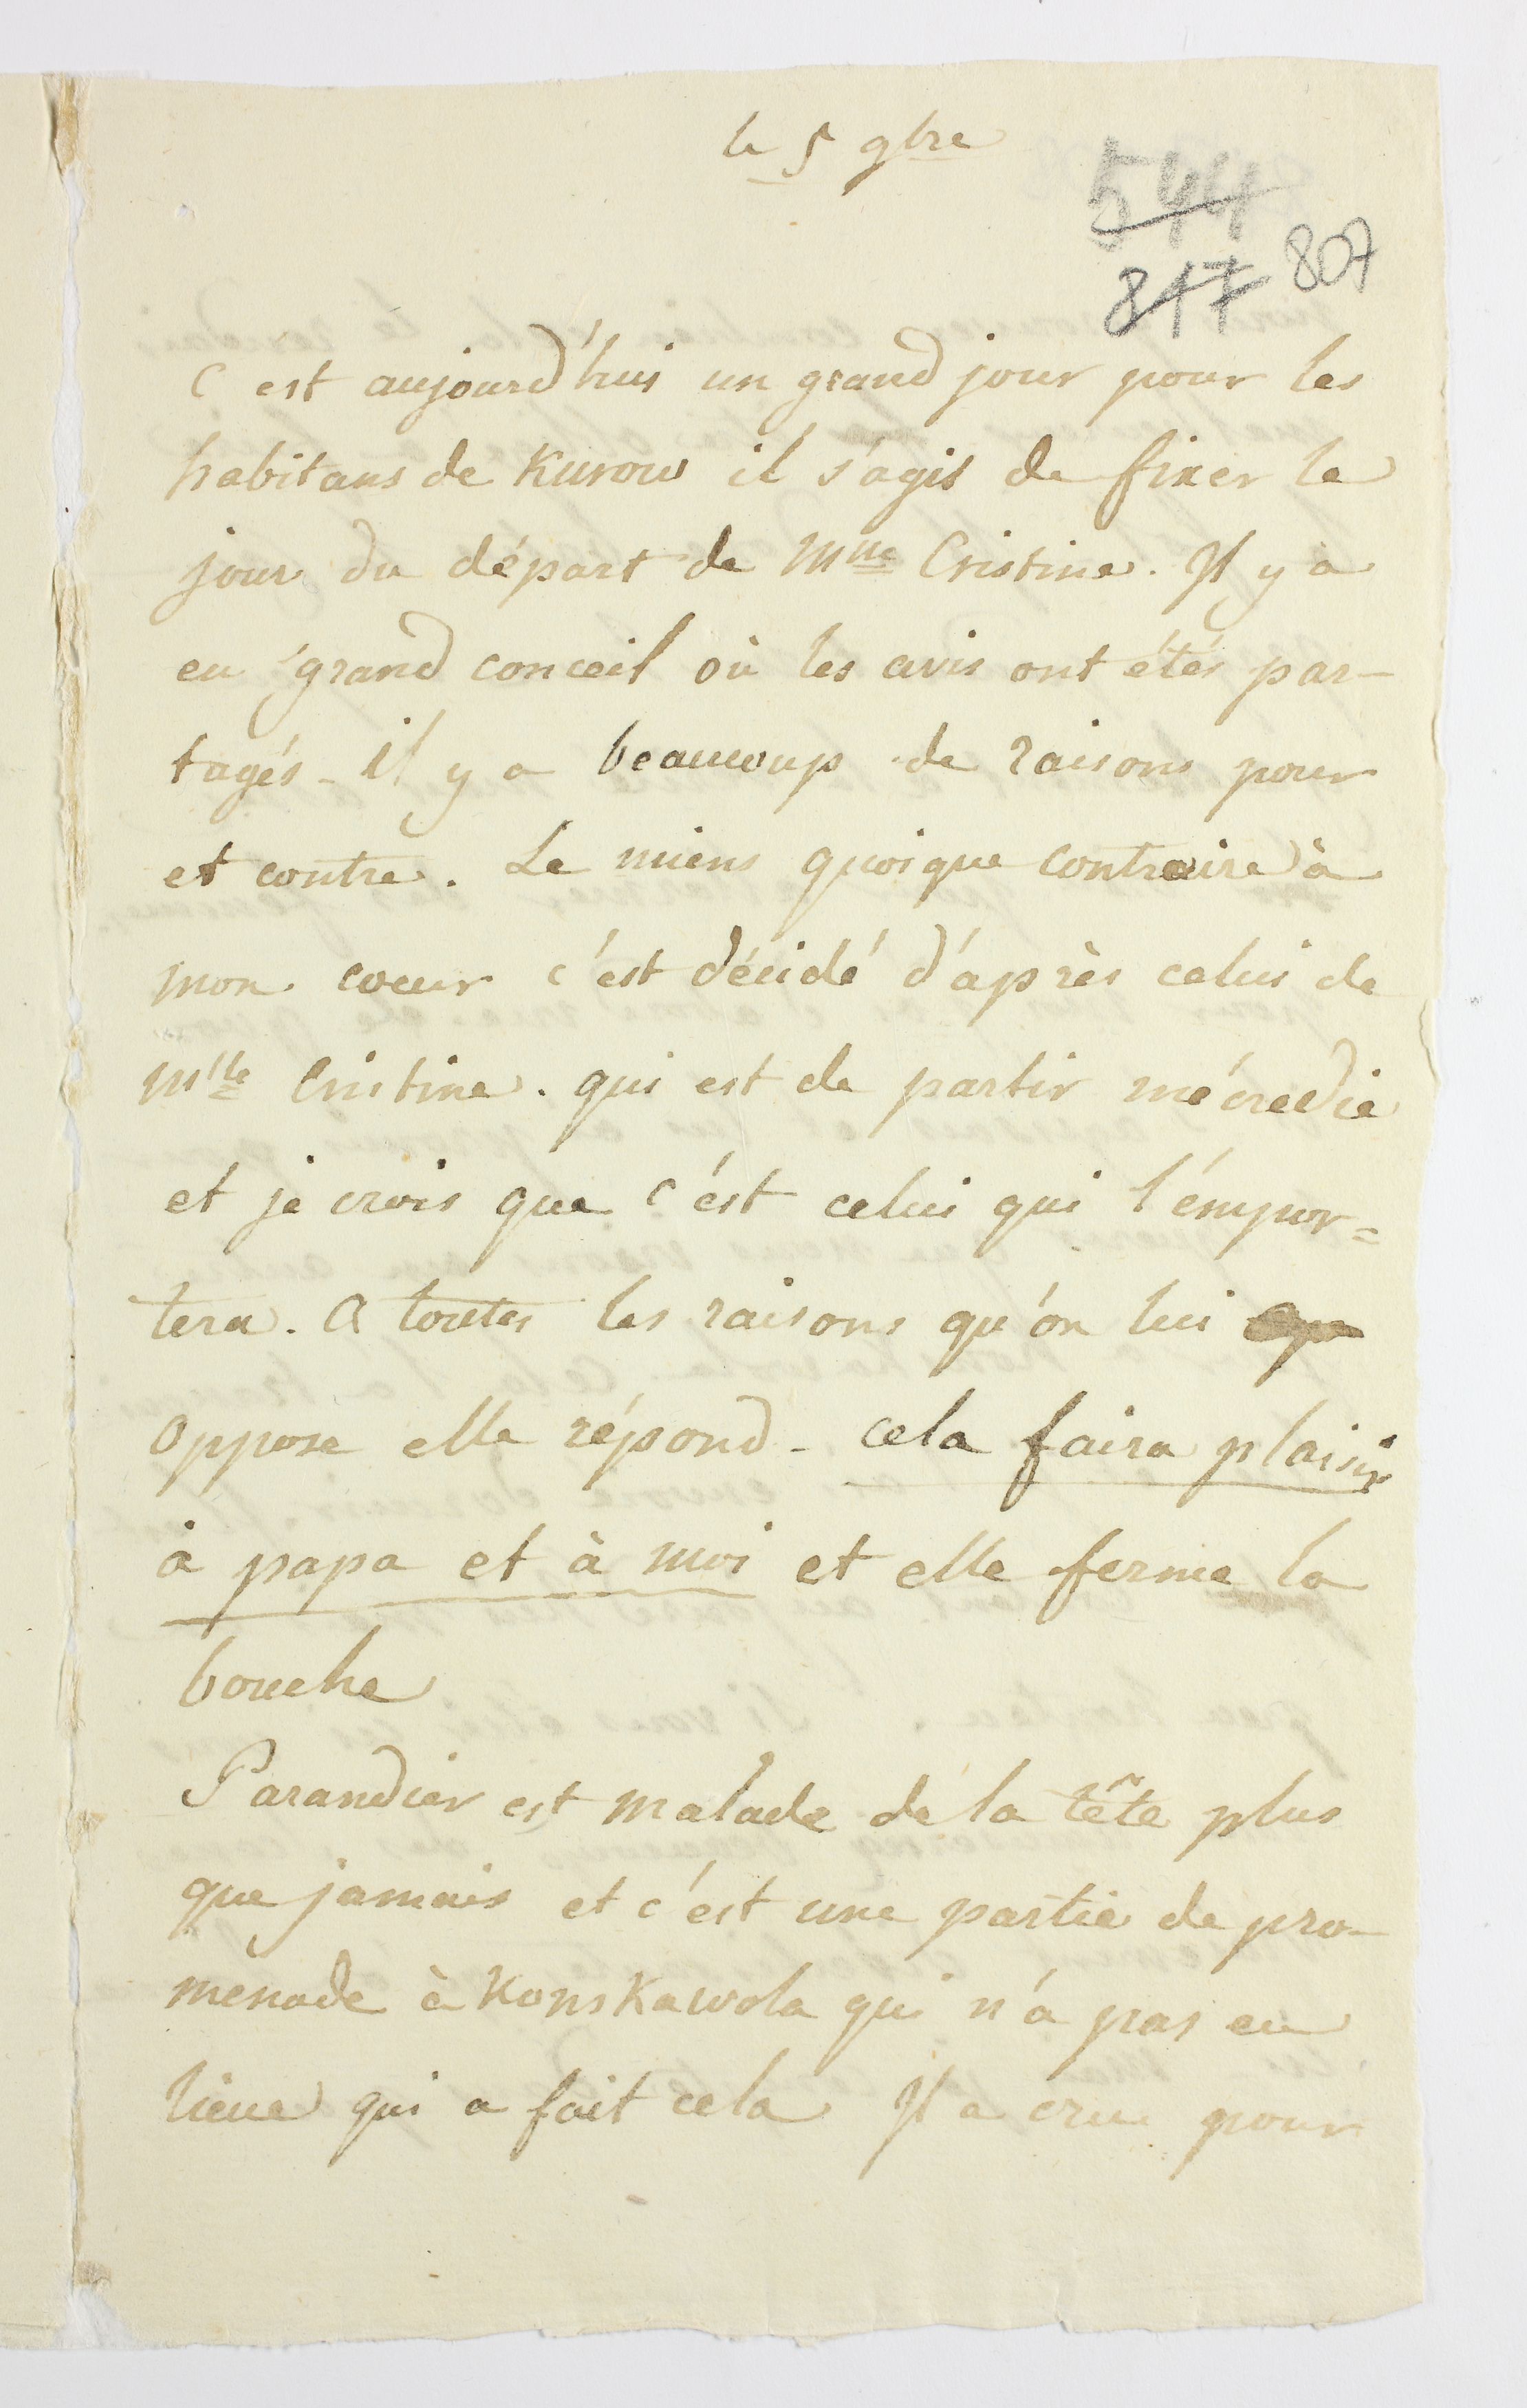 le 5 9bre
544
817 807
C est aujourd'hui un grand jour pour les
habitans de Kurow il s'agis de fixer le
jour du départ de Mlle Cristine. Il y a
eu grand conceil où les avis ont étés par-
tagés - il y a beaucoup de raisons pour
et contre. Le miens quoique contraire à
mon coeur c'est décidé d'après celui de
Mlle Cristine. qui est de partir mécredie
et je crois que c'est celui qui l'empor=
tera. A toutes les raisons qu'on lui
oppose elle répond - cela faira plaisir
à papa et à moi et elle ferme la
bouche
Parandier est malade de la tête plus
que jamais et c'est une partie de pro-
menade à Konskawola qui n'a pas eu
lieue qui a fait cela Il a crue pour